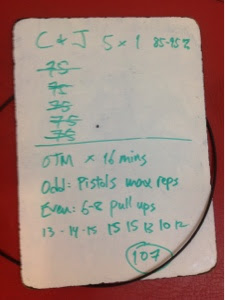 C & J 5 x 1 85-95%
75
75
75
75
75
OTM x 16 mins
Odd: Pistols max reps
Even: 6-8 pull ups
13 - 14 - 15 15 15 13 10 12
107